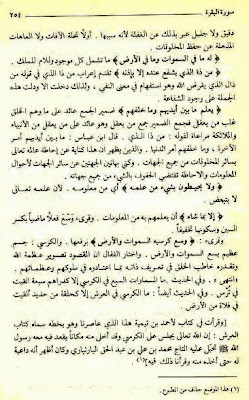 سورة البقرة ٢٥٤
دقيق ولا جليل عبر بذلك عن الغفلة لأنه سببها . أولًا تحله الآفات ولا العاهات
المذهلة عن حفظ المخلوقات .
﴿ له ما في السموات وما في الأرض ﴾ ما تشمل كل موجود واللام للملك .
﴿ من ذا الذي يشفع عنده إلا بإذنه ﴾ تقدم إعراب من ذا الذي في قوله من
ذا الذي يقرض الله وهو استفهام في معنى النفي . ولذلك دخلت الا ودلت هذه
الجملة على وجود الشفاعة .
﴿ يعلم ما بين أيديهم وما خلفهم ﴾ ضمير الجمع عائد على ما وهم الخلق
غلب من يعقل فجمع الضمير جمع من يعقل وهو عائد على من يعقل من الأنبياء
والملائكة مراعاة لقوله : من ذا الذي . قال ابن عباس : ما بين أيديهم أمر
الآخرة ، وما خلفهم أمر الدنيا . والذين يظهر ان هذا كناية عن إحاطة علمه تعالى
بسائر المخلوقات من جميع الجهات . وكني بهاتين الجهتين عن سائر الجهات لأحوال
المعلومات والاحاطة تقتضي الحفوف بالشيء من جميع جهاته .
﴿ ولا يحيطون بشيء من علمه ﴾ أي من معلومه . لأن علمه تعالى لا
يتبعض .
﴿ إلا بما شاء ﴾ أن يعلمهم به من المعلومات . وقرىء وَسِعَ فعلًا ماضياً بكسر
السين وسكونها تخفيفاً .
وقرىء : ﴿ وسع كرسيه السموات والأرض ﴾ برفعها . والكرسي : جسم
عظيم يسع السموات والأرض . واختار القفال ان المقصود تصوير عظمة الله
وتقدره خاطب الخلق في تعريف ذاته بما اعتادوه في ملوكهم وعظمائهم .
وانتهى . وفي الحديث . ما السموات السبع في الكرسي إلا كدراهم سبعة ألقيت
في ترس . وفي الحديث أيضاً : ما الكرسي في العرش إلا كحلقة من حديد ألقيت
في فلاة من الأرض .
[وقرأت في كتاب لأحمد بن تيمية هذا الذي عاصرنا وهو بخطه سماه كتاب
العرش : إن الله تعالى يجلس على الكرسي وقد أخلى منه مكاناً يقعد فيه معه رسول
الله ﷺ تحيّل عليه التاج محمد بن علي بن عبد الحق البارنباري وكان أظهر أنه داعية
له حتى أخذه منه وقرأنا ذلك فيه](١) .
(١) هذا الموضع حذف من المطبوع .